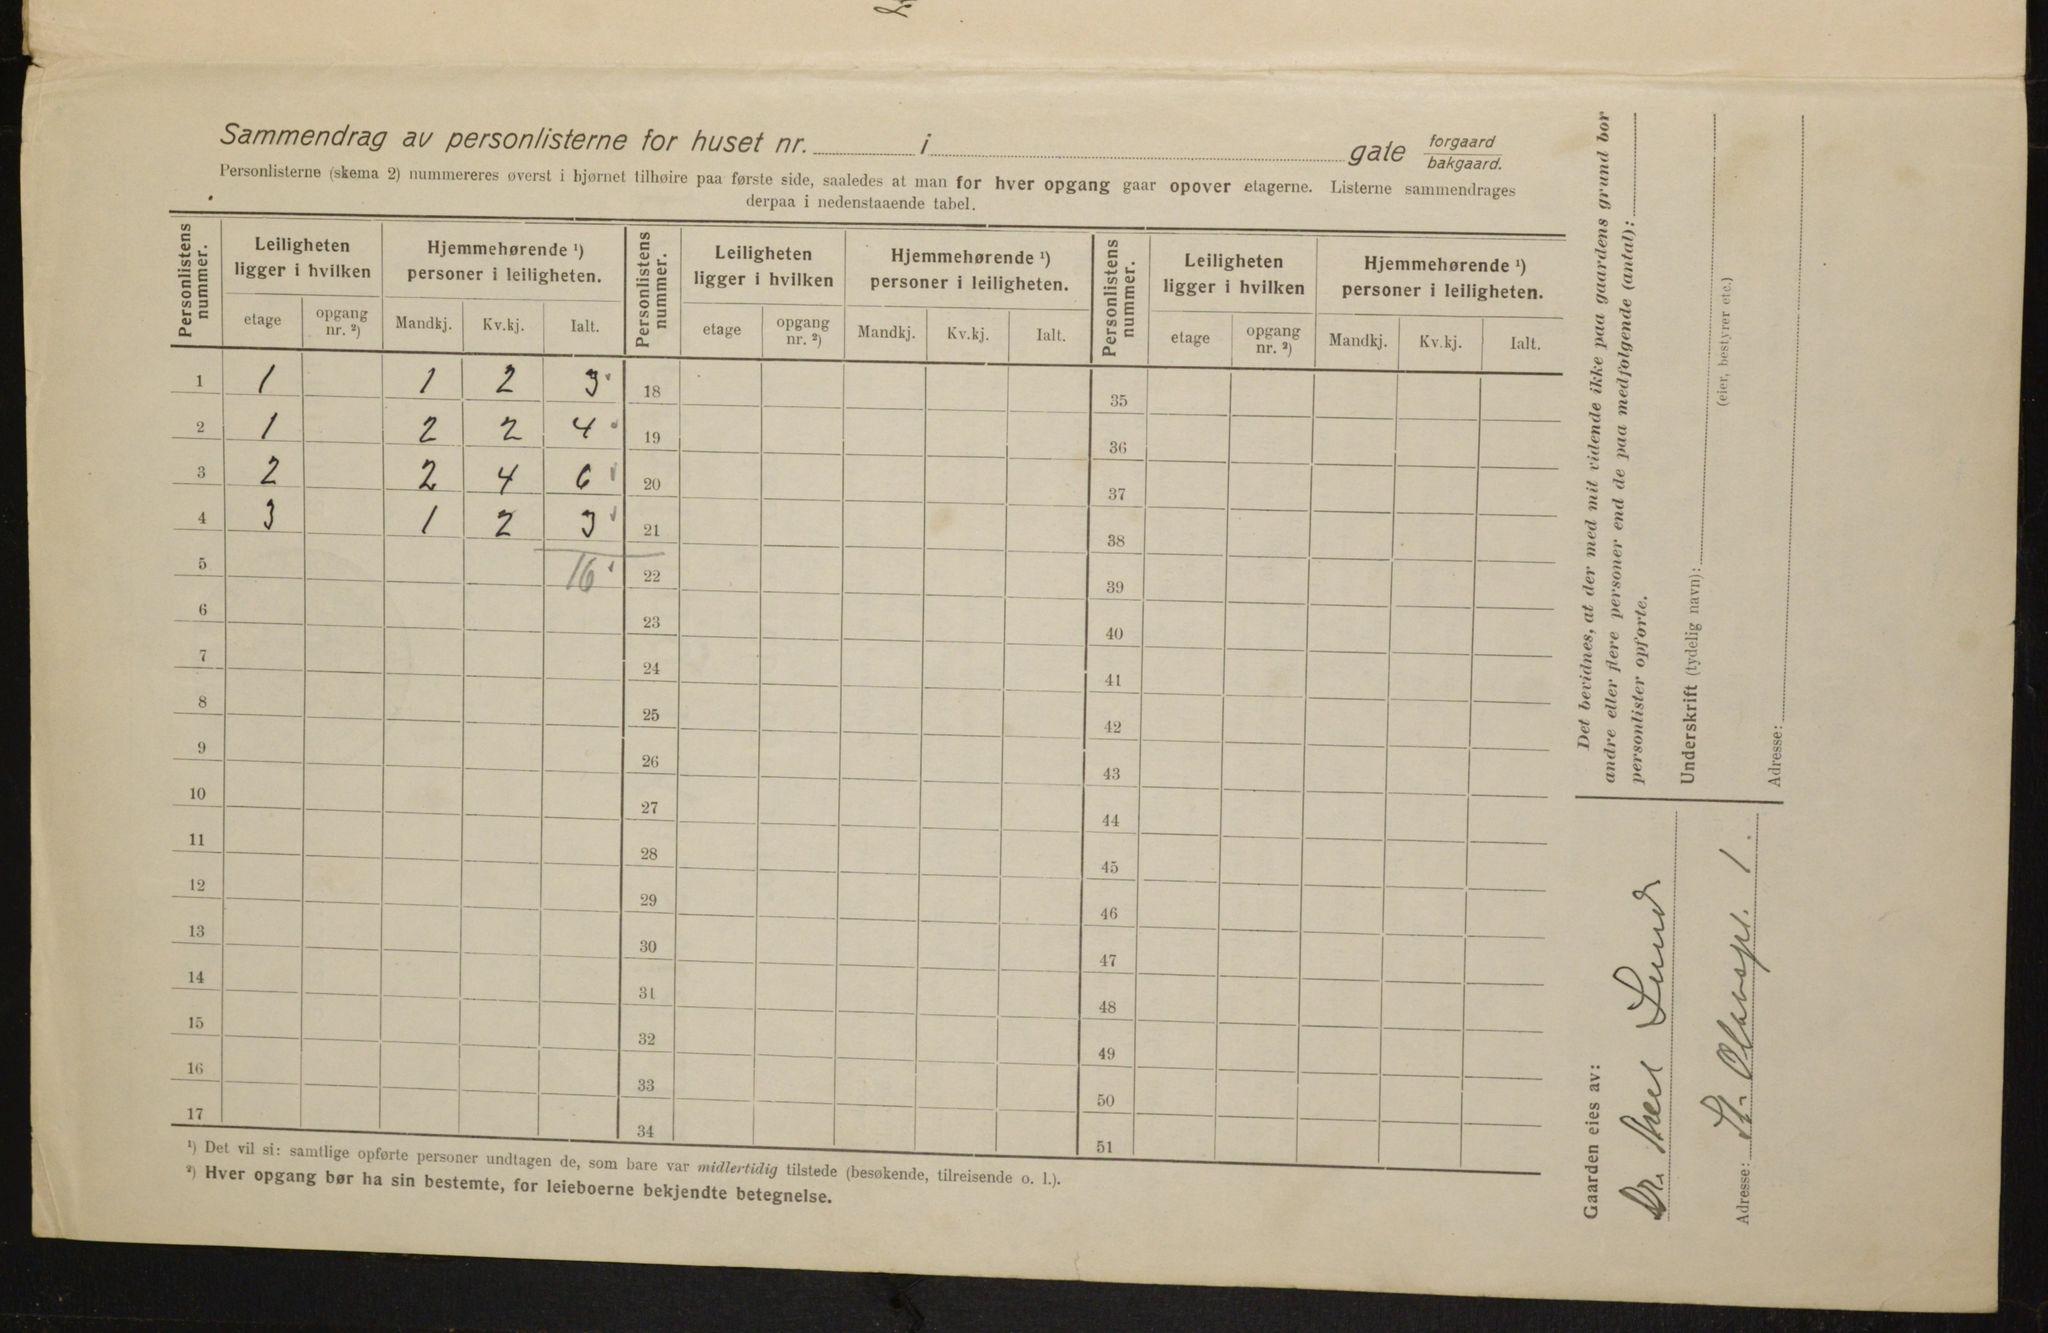 Sammendrag av personlisterne for huset nr. i gate forgaard
bakgaard.
Personlisterne (skema 2) nummereres øverst i hjørnet tilhøire paa første side, saaledes at man for hver opgang gaar opover etagerne. Listerne sammendrages
derpaa i nedenstaaende tabel.
Personlistens nummer. Leiligheten ligger i hvilken Hjemmehørende ¹) personer i leiligheten. Personlistens nummer. Leiligheten ligger i hvilken Hjemmehørende ¹) personer i leiligheten. Personlistens nummer. Leiligheten ligger i hvilken Hjemmehørende ¹) personer i leiligheten.
etage opgang nr. ²) Mandkj. Kv.kj. Ialt. etage opgang nr. ²) Mandkj. Kv.kj. Ialt. etage opgang nr. ²) Mandkj. Kv.kj. Ialt.
1 1 1 2 3 18 35
2 1 2 2 4 19 36
3 2 2 4 6 20 37
4 3 1 2 3 21 38
5 16 22 39
6 23 40
7 24 41
8 25 42
9 26 43
10 27 44
11 28 45
12 29 46
13 30 47
14 31 48
15 32 49
16 33 50
17 34 51
¹) Det vil si: samtlige opførte personer undtagen de, som bare var midlertidig tilstede (besøkende, tilreisende o. l.).
²) Hver opgang bør ha sin bestemte, for leieboerne bekjendte betegnelse.
Det bevidnes, at der med mit vidende ikke paa gaardens grund bor
andre eller flere personer end de paa medfølgende (antal):
personlister opførte.
Underskrift (tydelig navn):
(eier, bestyrer etc.)
Adresse:
Gaarden eies av:
Dr. Lund
Adresse: St. Olavspl. 1.